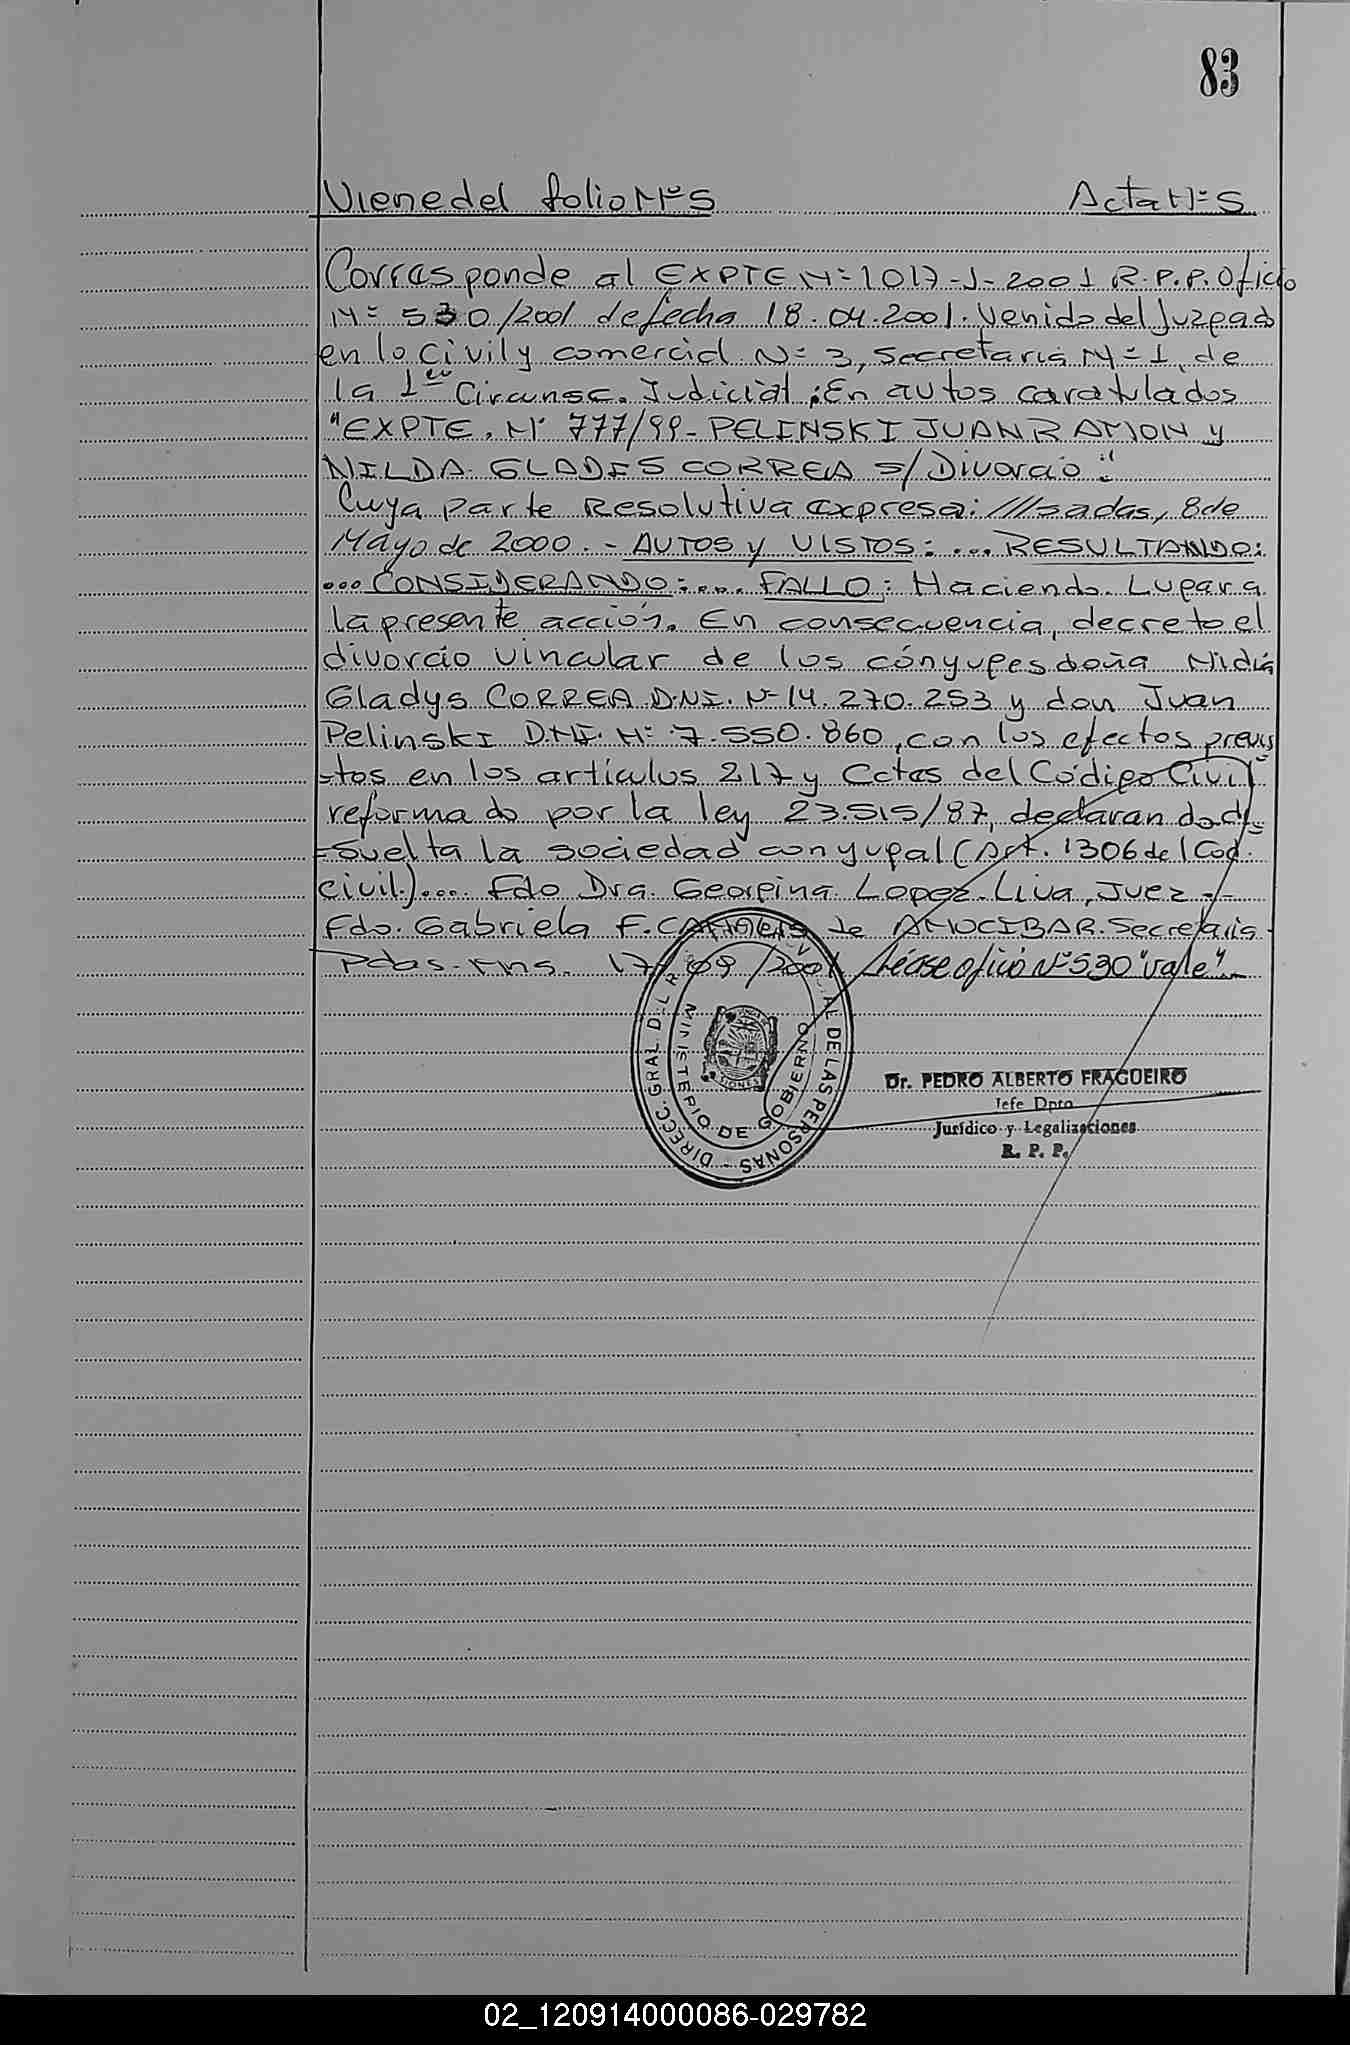 83
Viene del folio Nº 5 Acta Nº 5
Corresponde al EXPTE Nº 1017-J-2001 R.P.P. Oficio
Nº 530/2001 de fecha 18.04.2001. Venido del Juzgado
en lo Civil y comercial Nº 3, secretaria Nº 1, de
la 1era Circunsc. Judicial; En autos caratulados
"EXPTE. Nº 777/99 - PELINSKI JUAN RAMON y
NILDA GLADES CORREA s/ Divorcio".
Cuya parte Resolutiva expresa: ///sadas, 8 de
Mayo de 2000. - AUTOS y VISTOS: ... RESULTANDO:
... CONSIDERANDO: .... FALLO: Haciendo Lugar a
la presente acción. En consecuencia, decreto el
divorcio vincular de los cónyuges doña Nidia
Gladys CORREA D.N.I. Nº 14.270.253 y don Juan
Pelinski D.N.I. Nº 7.550.860, con los efectos previs
-tos en los artículos 217 y Cctes del Código Civil
reformado por la ley 23.515/87, declarando di=
=suelta la sociedad conyugal (Art. 1306 del Cod.
civil.).... Fdo Dra. Georgina Lopez Liva, Juez --
Fdo. Gabriela F. de AMOCIBAR. Secretaria
Pdas. Mns. 17/09/2001 Léase oficio Nº 530 "vale".
DIRECC. GRAL. DEL R. PROVINCIAL DE LAS PERSONAS
MINISTERIO DE GOBIERNO
MISIONES
Dr. PEDRO ALBERTO FRAGUEIRO
Jefe Dpto
Jurídico y Legalizaciones
R. P. P.
02_120914000086-029782